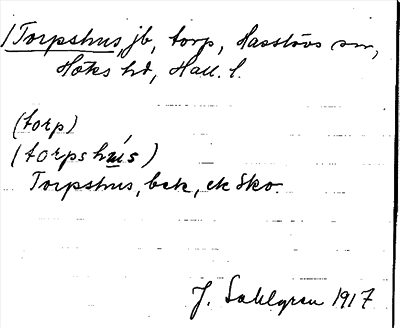 Torpshus, jb, torp, Hasslövs sn,
Höks hd, Hall. l.
(torp)
(torpshús)
Torpshus, bek, ek Sko.
J. Sahlgren 1917